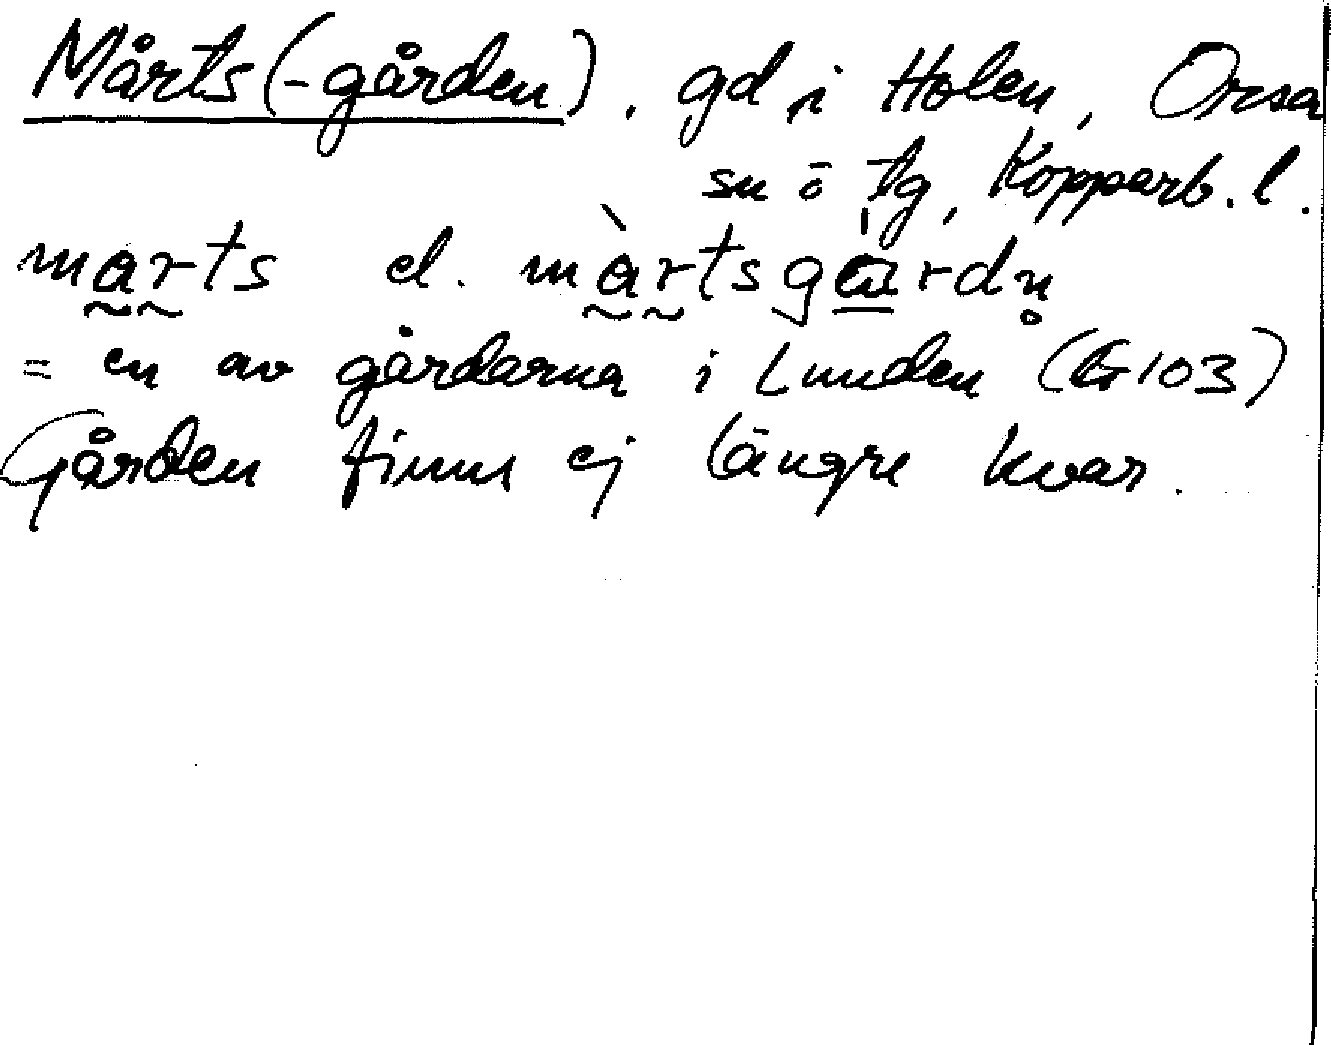 Mårts(-gården), gd i Holen, Orsa
sn ö tg, Kopparb. l.
marts el. màrtsgàrdn̥
= en av gårdarna i Lunden (G 103)
Gården finns ej längre kvar.